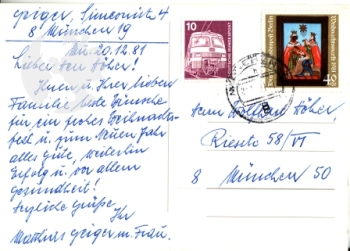 Geiger, Simeonistr. 4
8 München 19
Mü. 20.12.81
Lieber Herr Höher!
Ihnen u. Ihrer lieben
Familie beste Wünsche
für ein frohes Weihnachts-
fest u. zum Neuen Jahr
alles Gute, weiterhin
Erfolg u. vor allem
Gesundheit!
Herzliche Grüße,
Ihr
Matthias Geiger m. Frau.
10
Weihnachtsmarke 1981
40
Herrn
Höher
Riesstr 58/VI
8 München 50